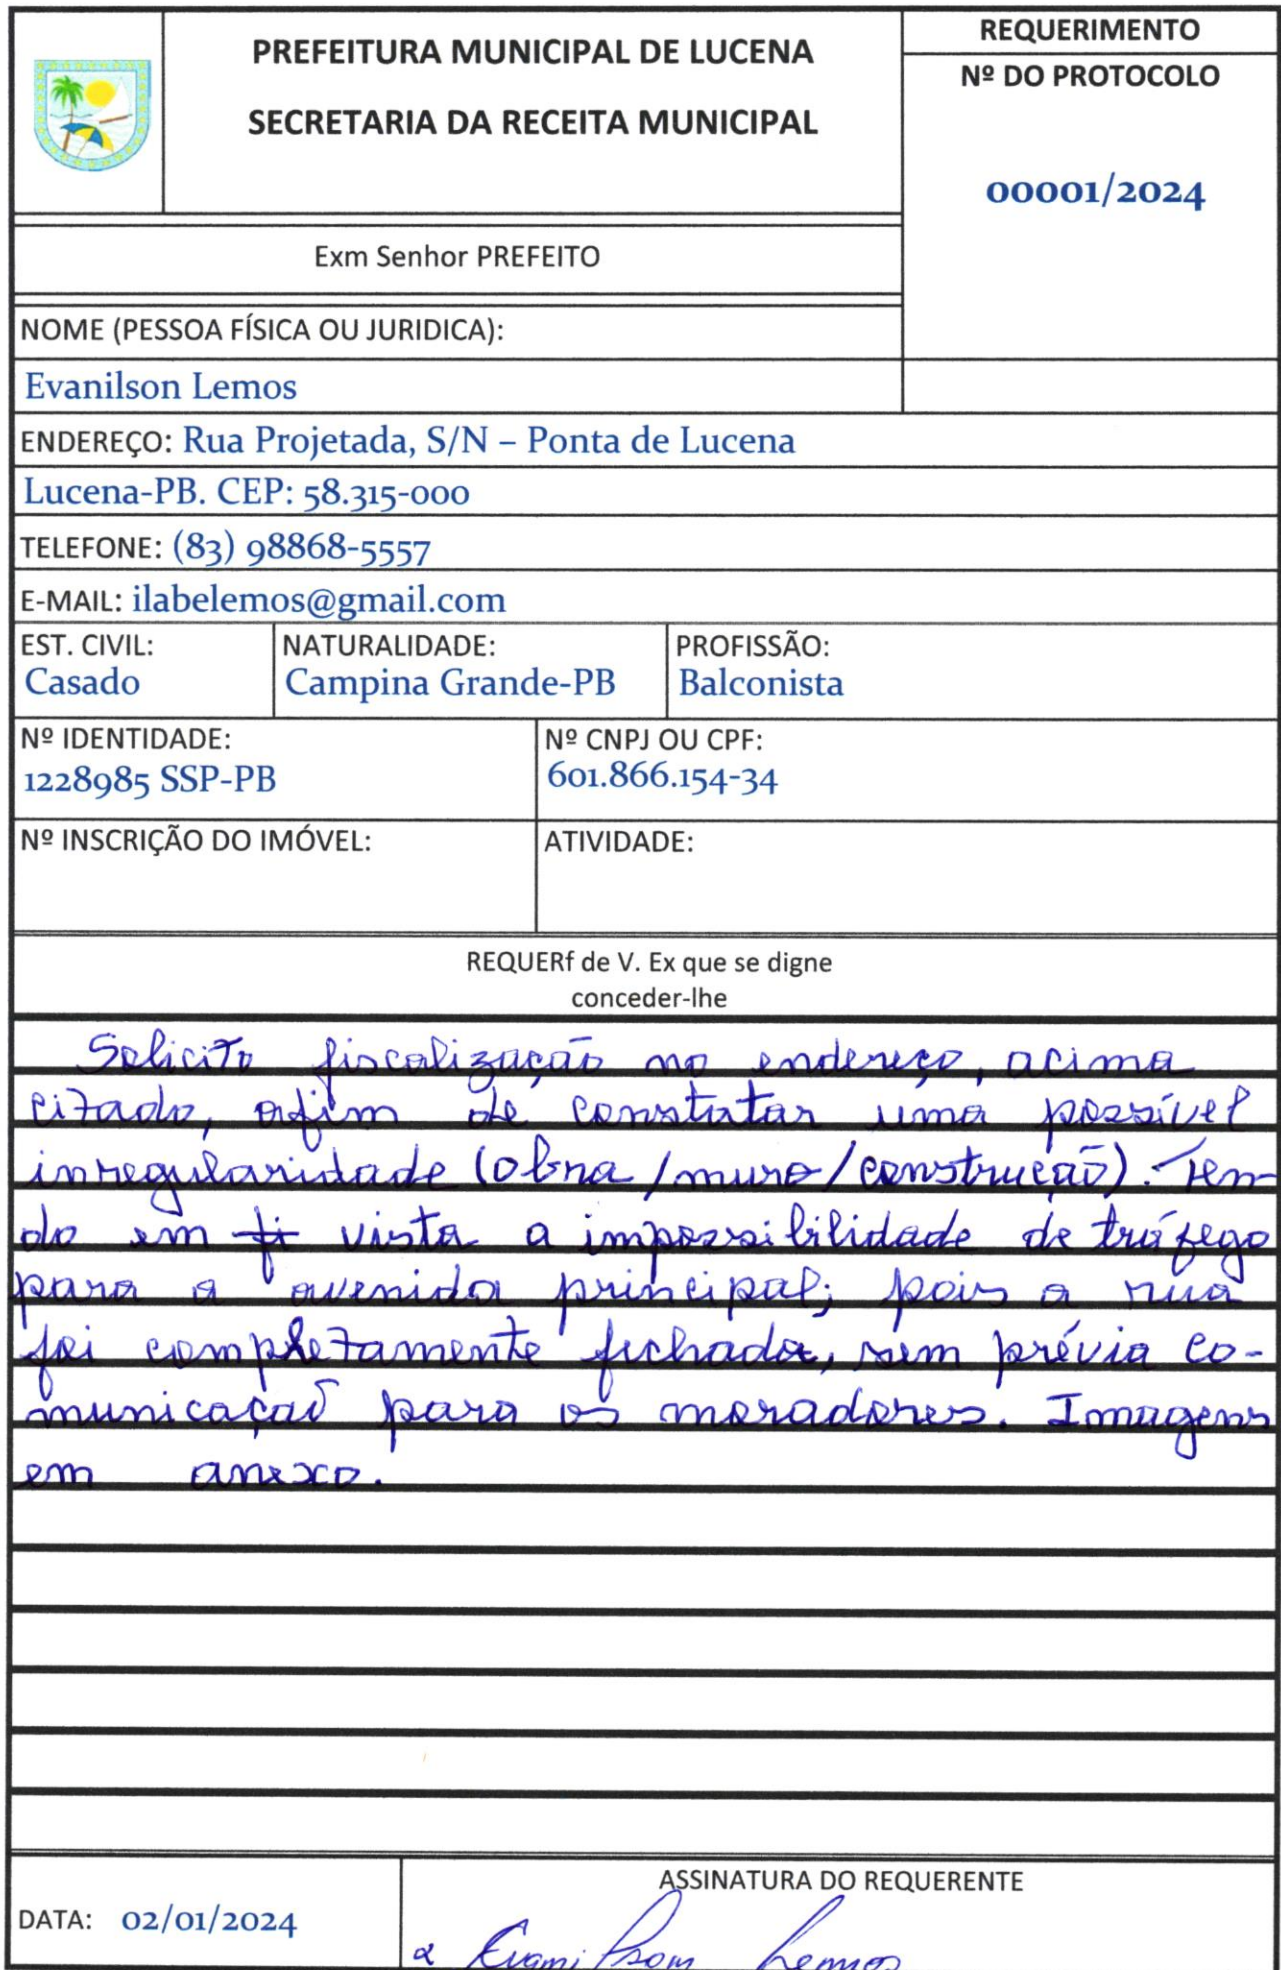 PREFEITURA MUNICIPAL DE LUCENA
SECRETARIA DA RECEITA MUNICIPAL
REQUERIMENTO
Nº DO PROTOCOLO
00001/2024
Exm Senhor PREFEITO
NOME (PESSOA FÍSICA OU JURIDICA):
Evanilson Lemos
ENDEREÇO: Rua Projetada, S/N – Ponta de Lucena
Lucena-PB. CEP: 58.315-000
TELEFONE: (83) 98868-5557
E-MAIL: ilabelemos@gmail.com
EST. CIVIL:
Casado
NATURALIDADE:
Campina Grande-PB
PROFISSÃO:
Balconista
Nº IDENTIDADE:
1228985 SSP-PB
Nº CNPJ OU CPF:
601.866.154-34
Nº INSCRIÇÃO DO IMÓVEL:
ATIVIDADE:
REQUERf de V. Ex que se digne
conceder-lhe
Solicito fiscalização no endereço, acima
citado, afim de constatar uma possível
irregularidade (obra/muro/construção). Ten-
do em vista a impossibilidade de tráfego
para a avenida principal; pois a rua
foi completamente fechada, sem prévia co-
municação para os moradores. Imagens
em anexo.
DATA: 02/01/2024
ASSINATURA DO REQUERENTE
Evanilson Lemos